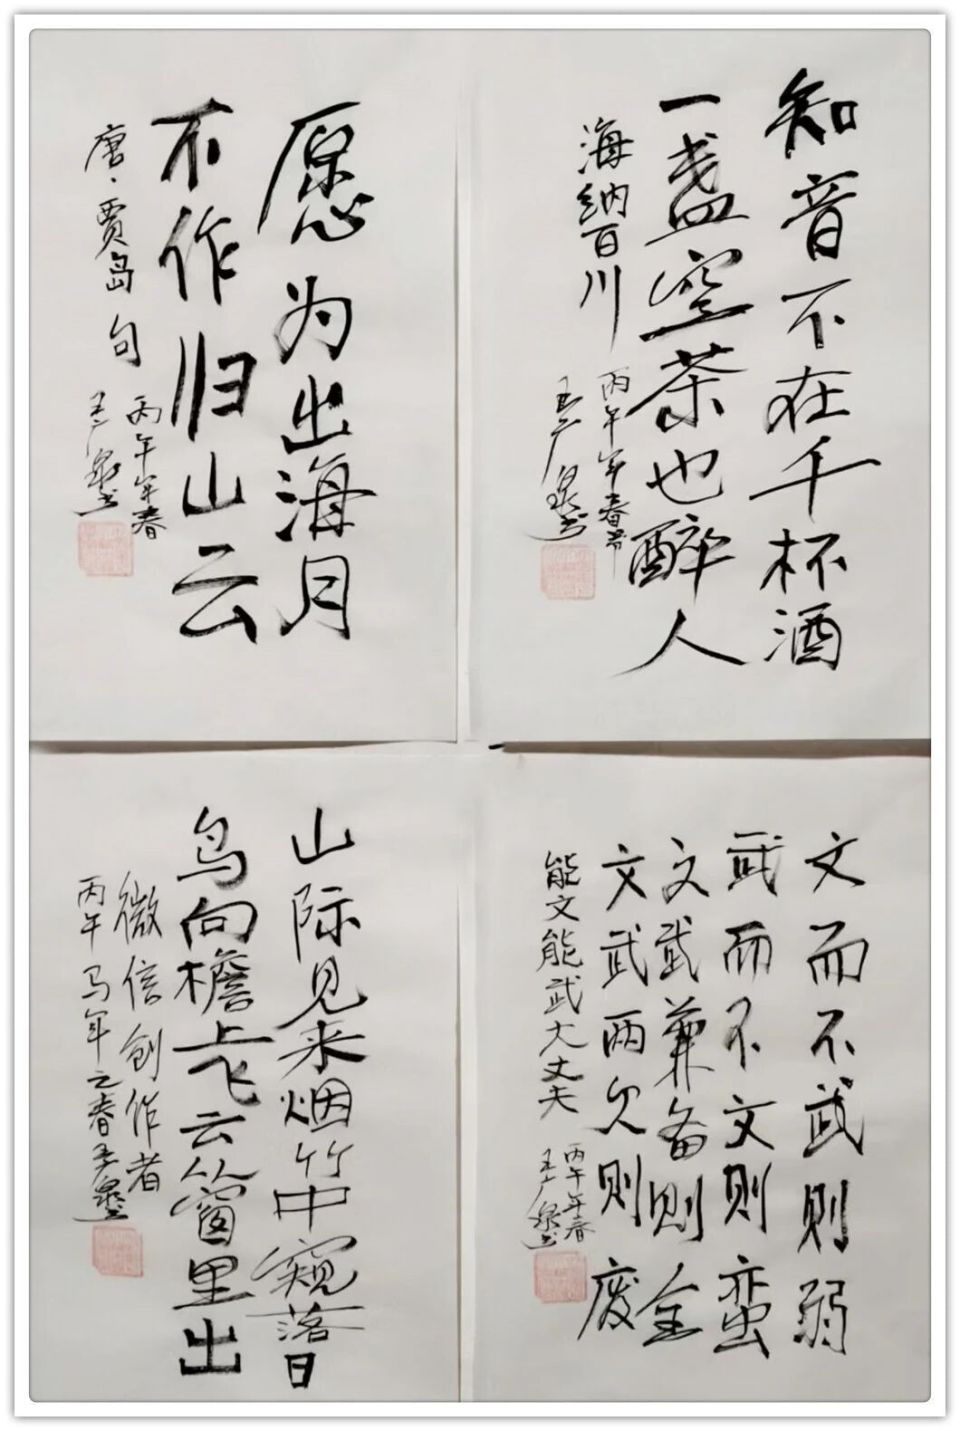 知音不在千杯酒
一盏空茶也醉人
海纳百川
丙午年春节
愿为出海月
不作归山云
唐·贾岛句
丙午年春
文而不武则弱
武而不文则蛮
文武兼备则全
文武两欠则废
能文能武大丈夫
丙午年春
山际见来烟竹中窥落日
鸟向檐上飞云窗里出
微信创作者
丙午马年之春